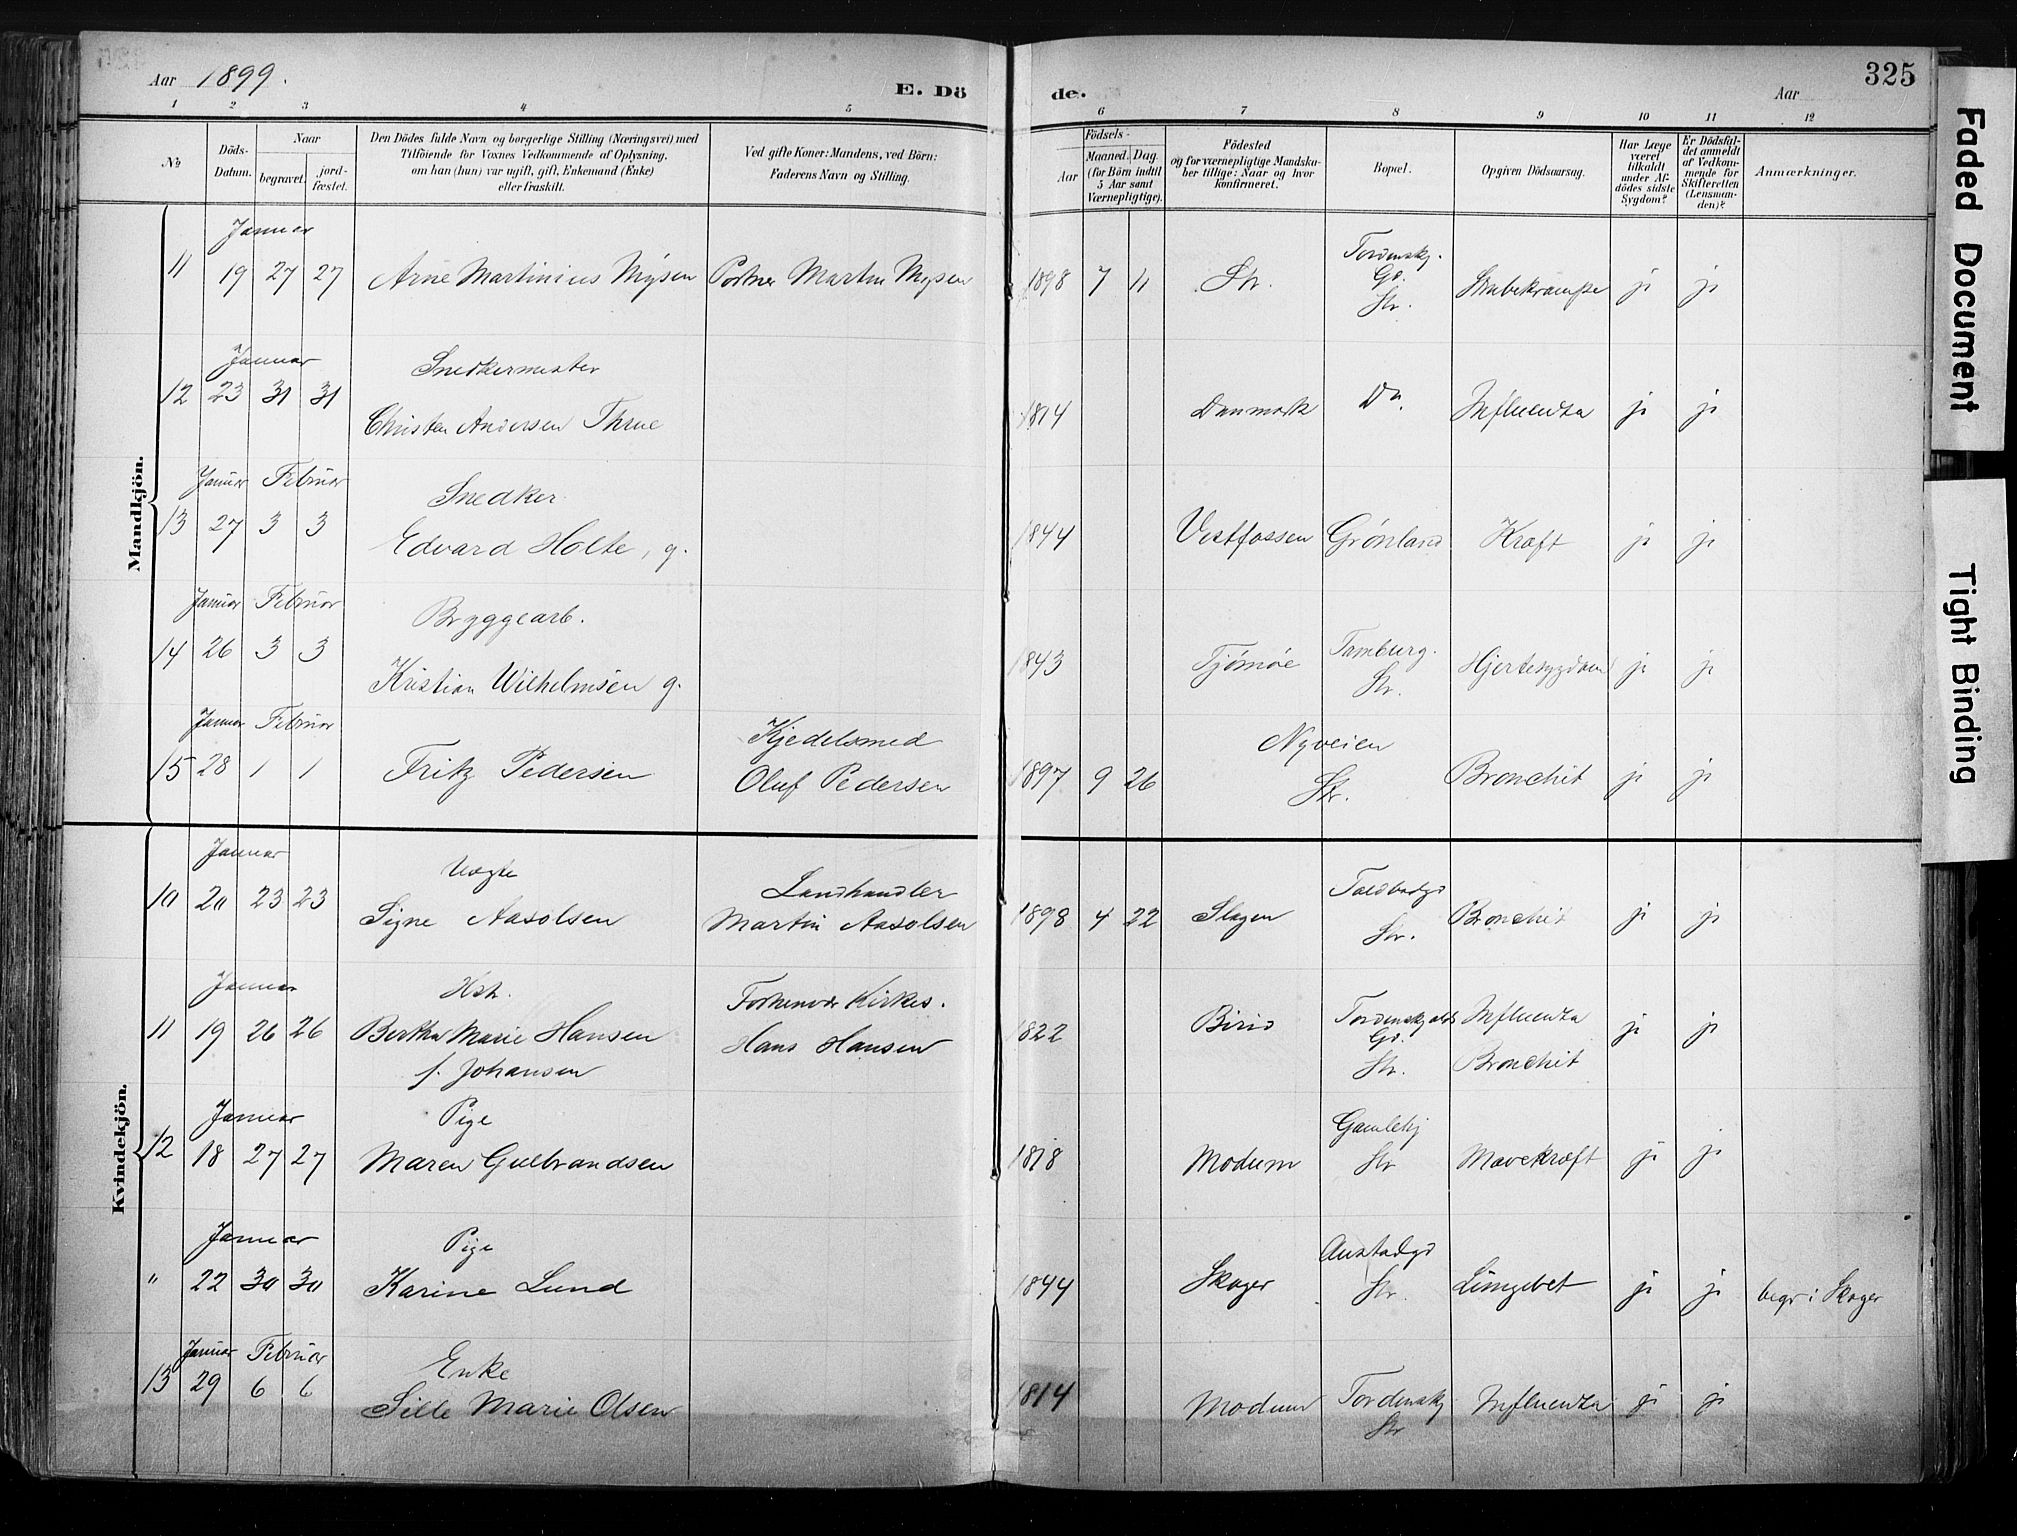 Aar 1899.
E. Dö
de.
Aar
325
1 2 3 4 5 6 7 8 9 10 11 12
No
Döds-Datum.
Naar
begravet.
jord-fæstet.
Den Dödes fulde Navn og borgerlige Stilling (Næringsvei) med
Tilföiende for Voxnes Vedkommende af Oplysning,
om han (hun) var ugift, gift, Enkemand (Enke)
eller fraskilt.
Ved gifte Koner: Mandens, ved Börn:
Faderens Navn og Stilling.
Födsels-
Aar
Maaned.
Dag.
(for Börn indtil
5 Aar samt
Værnepligtige).
Födested
og for værnepligtige Mandska-
ber tillige: Naar og hvor
konfirmeret.
Bopæl.
Opgiven Dödsaarsag.
Har Læge
været
tilkaldt
under Af-
dödes sidste
Sygdom?
Er Dödsfal-
det anmeldt
af Vedkom-
mende for
Skifteretten
(Lensman-
den)?
Anmærkninger.
Mandkjön.
Januar
11 19 27 27 Arne Martinius Mysen Portner Martin Mysen 1898 7 11 Str. Tordenskj. Gd. Str. Strubekrampe ja ja
Januar
Snedkermester
12 23 31 31 Christen Andersen Thrue 1814 Danmark Do. Influenza ja ja
Januar Februar
Snedker
13 27 3 3 Edvard Holte, g. 1844 Vestfossen Grönland Kræft ja ja
Januar Februar
Bryggearb.
14 26 3 3 Kristian Wilhelmsen g. 1843 Tjömöe Tamburg. Str. Hjertesygdom ja ja
Januar Februar
Kjedelsmed
15 28 1 1 Fritz Pedersen Oluf Pedersen 1897 9 26 Nyveien Str. Bronchit ja ja
Kvindekjön.
Januar
Uægte
Landhandler
10 20 23 23 Signe Aasolsen Martin Aasolsen 1898 4 22 Slagen Toldbodgd Str. Bronchit ja ja
Januar
Hstr.
Forhenvær Kirkes.
11 19 26 26 Bertha Marie Hansen Hans Hansen 1822 Birid Tordenskjolds Gd. Str. Influenza
f. Johansen Bronchit ja ja
Januar
Pige
12 18 27 27 Maren Gulbrandsen 1818 Modum Gamlehj Str Mavekræft ja ja
Januar
Pige
" 22 30 30 Karine Lund 1844 Skoger Austadgd Str. Lungebet ja ja begr i Skoger
Januar Februar
Enke
13 29 6 6 Sille Marie Olsen 1814 Modum Tordenskj Str Influenza ja ja
Faded Document
Tight Binding